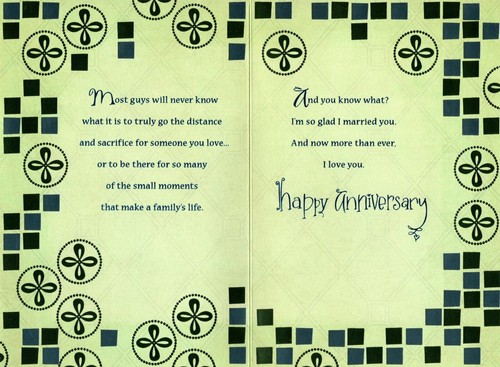 Most guys will never know
what it is to truly go the distance
and sacrifice for someone you love...
or to be there for so many
of the small moments
that make a family's life.
And you know what?
I'm so glad I married you.
And now more than ever,
I love you.
happy anniversary